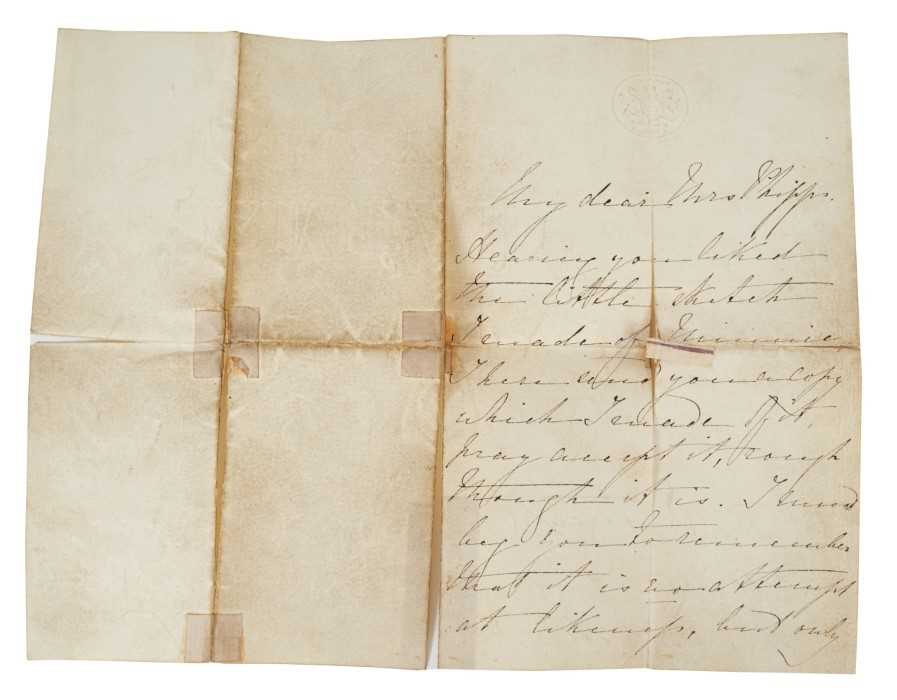 My dear Mrs Phipps,
Hearing you liked
the little sketch
I made of Minnie,
I here send you a copy
which I made of it,
pray accept it, rough
though it is. I must
beg you to remember
that it is no attempt
at likeness, but only